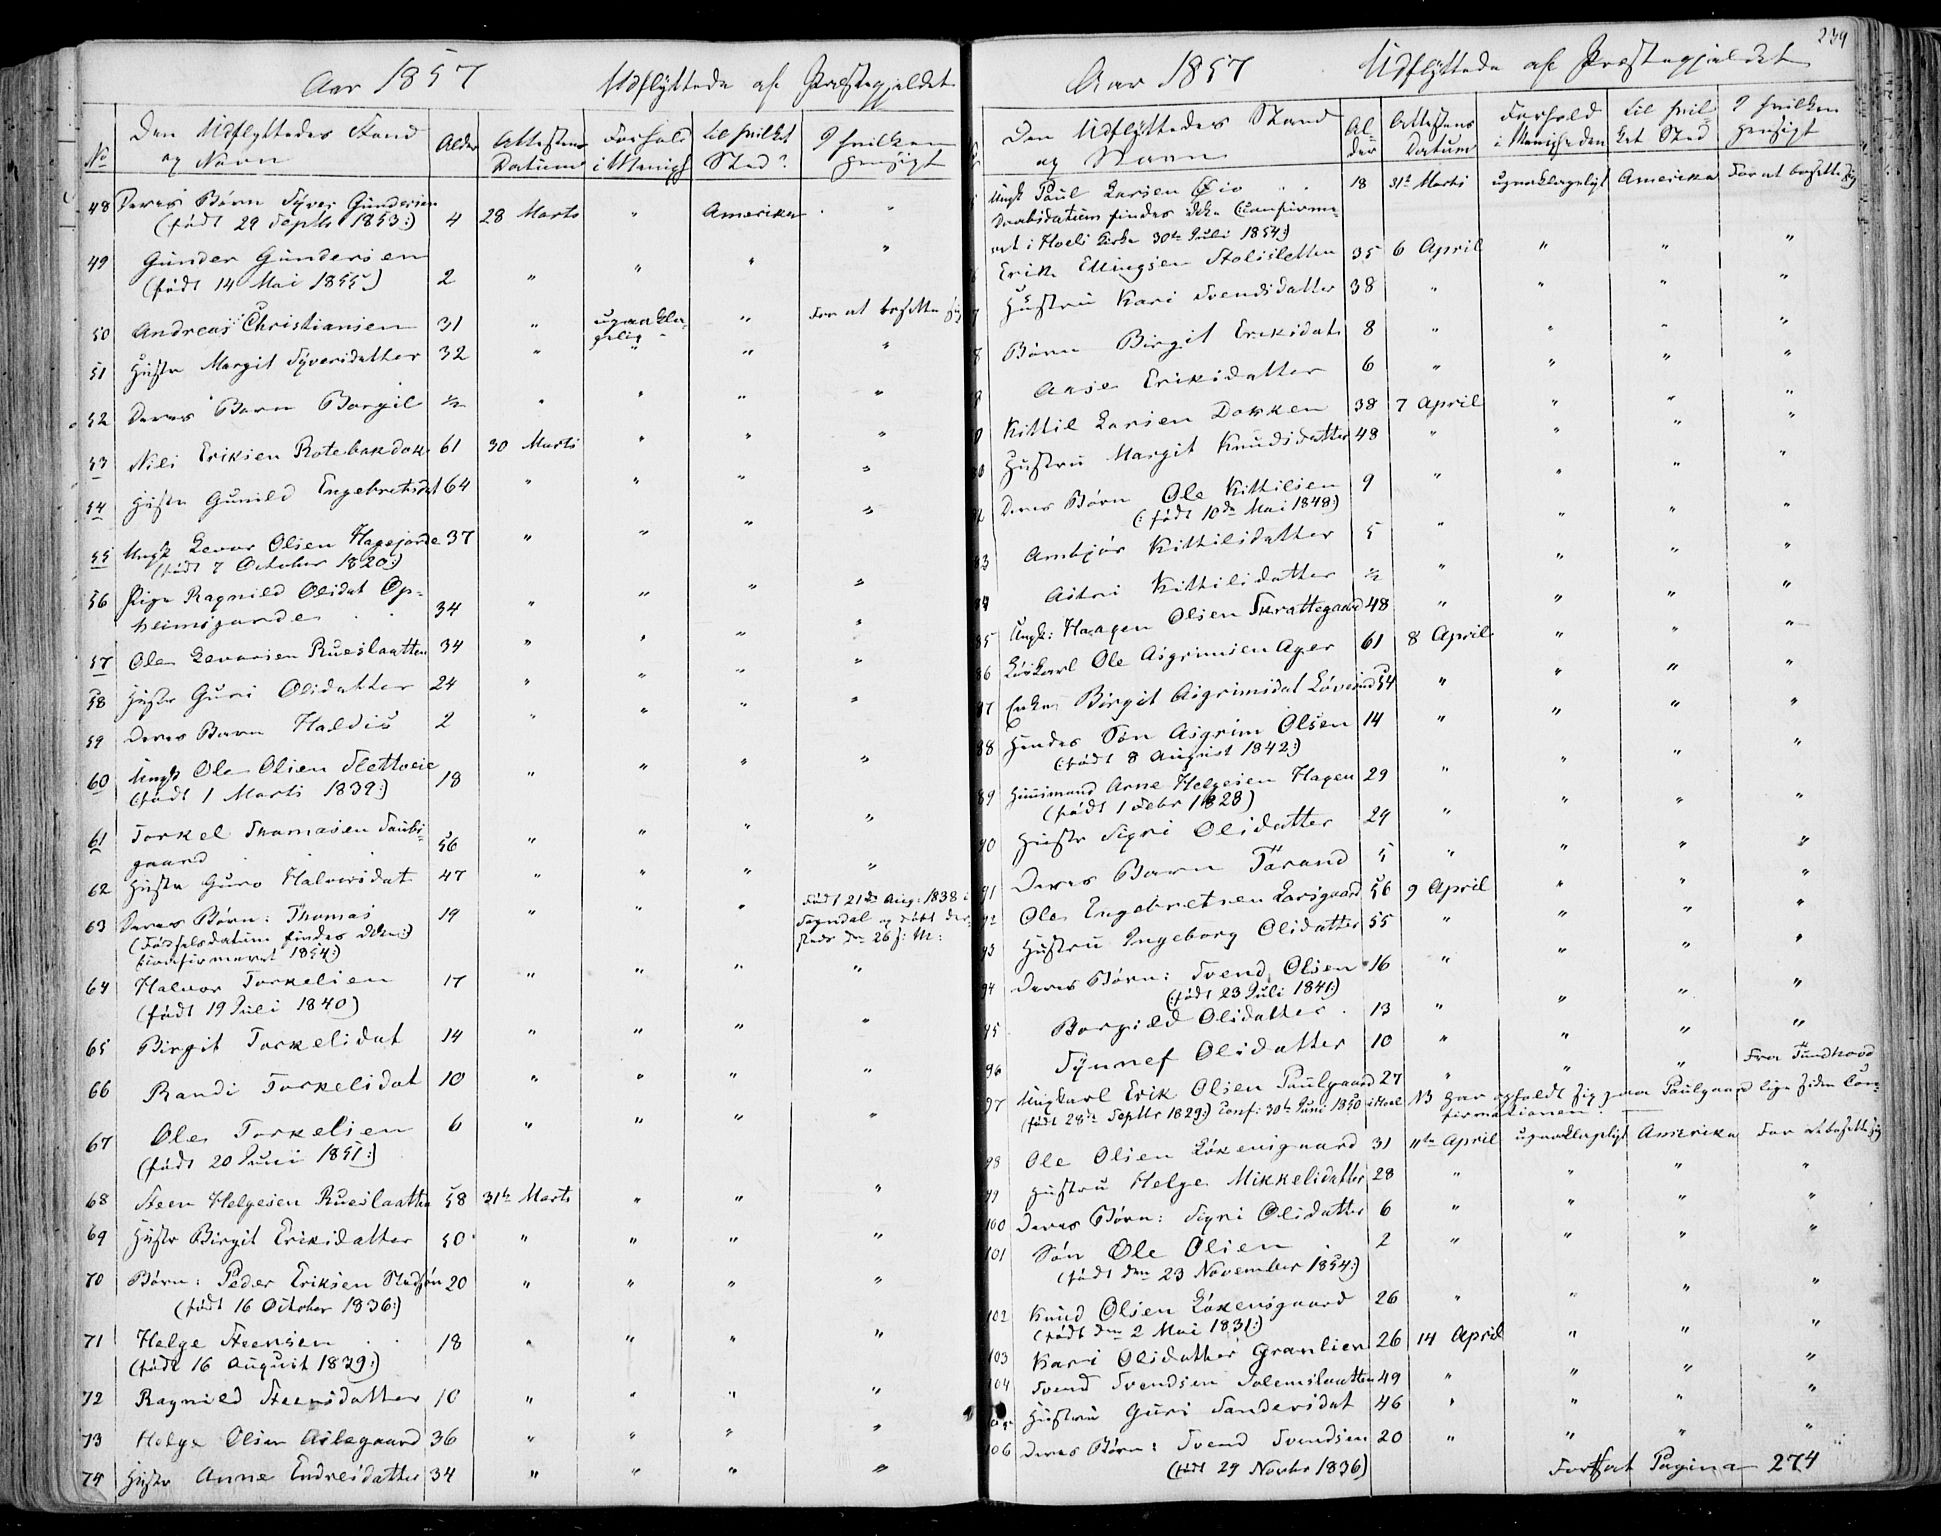 Aar 1857 Udflyttede af Præstegjeldet
No Den Udflyttedes Stand og Navn Alder Attestens Datum Forhold i Menigh til hvilket Sted? I hvilken Hensigt
48 Deres Børn Syver Gundersen
(født 29 Septbr 1853:) 4 28 Marts " Amerika "
49 Gunder Gundersen " " " "
(født 14 Mai 1855) 2
50 Andreas Christiansen 31 " upaaklagelig " For at bosette sig
51 Hustr Margit Syversdatter 32 " " " "
52 Deres Barn Borgil ½ " " " "
53 Nils Eriksen Rotebakdok 61 30 Marts " " "
54 Hustr Gunild Engebretsdat 64 " " " "
55 Ungk Levor Olsen Hagejorde 37 " " " "
(født 7 October 1820:)
56 Pige Ragnild Olsdat Op-
heimsjorde 34 " " " "
57 Ole Levorsen Rueslaatten 34 " " " "
58 Hustr Guri Olsdatter 24 " " " "
59 Deres Barn Haldis 2 " " " "
60 Ungk Ole Olsen Slettveie
(født 1 Marts 1839:) 18 " " " "
61 Torkel Thomasen
gaard 56 " " " "
62 Hustr Guro Halvorsdat 47 " " " "
63 Deres Børn: Thomas 19 " " " Født 21de Aug: 1838 i
(Fødselsdatum findes ikke:) Sogndal og døbt der-
Confirmeret 1854:) steds den 26 s: M:
64 Halvor Torkelsen 17 " " " "
(født 19 Juli 1840)
65 Birgit Torkelsdat 14 " " " "
66 Randi Torkelsdat 10 " " " "
67 Ole Torkelsen 6 " " " "
(født 20 Juni 1851:)
68 Steen Helgesen Rueslaatten 58 31te Marts " " "
69 Hustr Birgit Eriksdatter 50 " " " "
70 Børn: Peder Eriksen Stedsøn 20 " " " "
(født 16 October 1836:)
71 Helge Steensen 18 " " " "
(født 16 August 1839:)
72 Ragnild Steensdatter 10 " " " "
73 Helge Olsen Aslegaard 36 " " " "
74 Hustr Anne Endresdatter 34 " " " "
239
Aar 1857 Udflyttede af Præstegjeldet
Den Udflyttedes Stand og Navn Alder Attestens Datum Forhold i Menigheden til hvilket Sted I hvilken Hensigt
Ungk Paul Larsen Øio 18 31te Marts upaaklageligt Amerika For at bosette sig
Daabsdatum findes ikke (Confirme-
ret i Hoels Kirke 30te Juli 1854:)
Erik Ellingsen Stolsletten 35 6 April " " "
Hustru Kari Svendsdatter 38 " " " "
8 Børn Birgit Eriksdat 8 " " " "
9 Aase Eriksdatter 6 " " " "
Kittil Larsen Dokken 38 7 April " " "
Hustru Margit Knudsdatter 48 " " " "
Deres Børn Ole Kittilsen 9 " " " "
(: født 10de Mai 1848)
83 Ambjør Kittilsdatter 5 " " " "
84 Astri Kittilsdatter ½ " " " "
85 Ungk: Haagen Olsen Skrattegaard 48 " " " "
86 Løskarl Ole Asgrimsen Ager 61 8 April " " "
87 Enke Birgit Asgrimsdat 54 " " " "
88 Hendes Søn Asgrim Olsen 14 " " " "
(:født 8 August 1842:)
89 Huusmand Arne Helgesen Hagen 29 " " " "
(født 1 Febr 1828)
90 Hustr Sigri Olsdatter 29 " " " "
91 Deres Barn Tarand 5 " " " "
92 Ole Engebretsen Larsgaard 56 9 April " " "
93 Hustru Ingeborg Olsdatter 55 " " " "
94 Deres Børn: Svend Olsen 16 " " " "
(:født 23 Juli 1841:)
95 Borgild Olsdatter 13 " " " "
96 Synnef Olsdatter 10 " " " "
97 Ungkarl Erik Olsen Paulgaard 27 " " " Fra Tundhovd
(født 28de Septbr 1829:) Conf: 30te Juni 1850 i Hoel NB har opholdt sig paa Paulgaard lige siden Con-
firmationen.
98 Ole Olsen Løkensgaard 31 11te April upaaklageligt Amerika For at bosette sig
99 Hustru Helge Mikkelsdatter 28 " " " "
100 Deres Børn: Sigri Olsdatter 6 " " " "
101 Søn Ole Olsen 2 " " " "
(født den 23 November 1854:)
102 Knud Olsen Løkensgaard 26 " " " "
(født den 2 Mai 1831:)
103 Kari Olsdatter Granlien 26 14 April " " "
104 Svend Svendsen Solemslaatten 49 " " " "
Hustru Guri Sandersdat 46 " " " "
106 Deres Børn: Svend Svendsen 20 " " " "
(født 29 Novbr 1836)
Fortsat Pagina 274